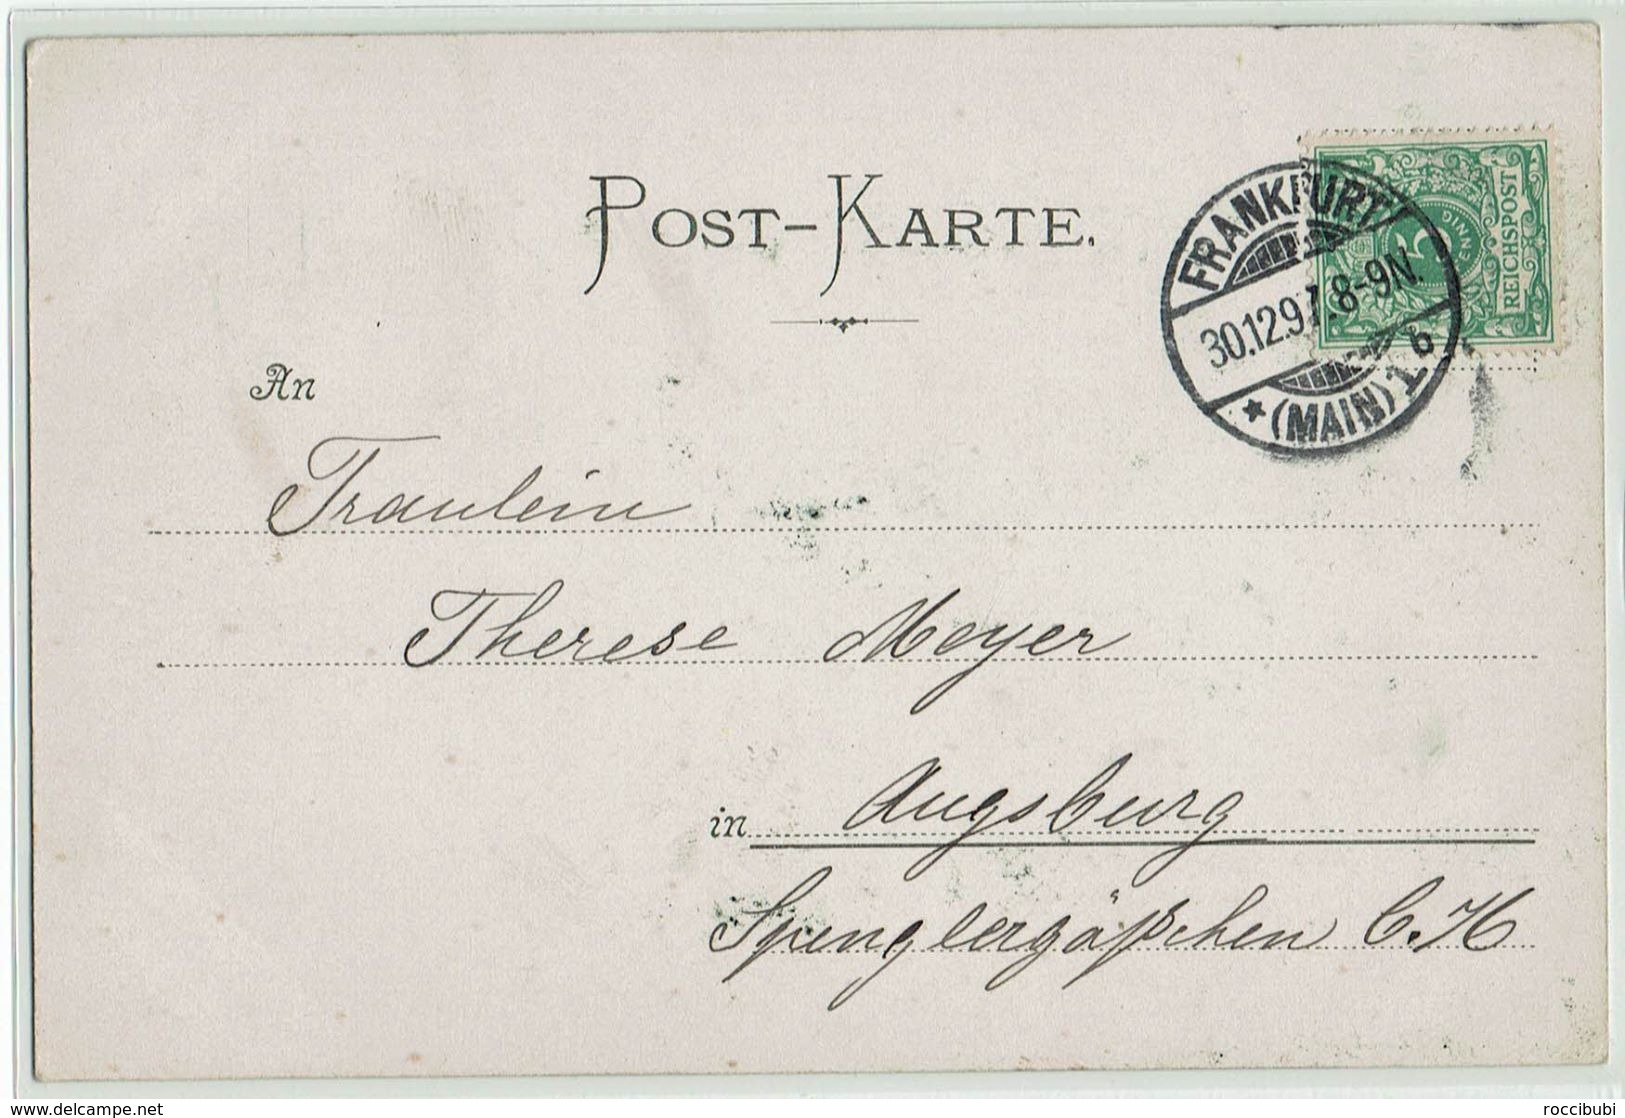 POST-KARTE.
FRANKFURT
30.12.97. 8-9N.
* (MAIN) 1 b
REICHSPOST
5
PFENNIG
An
Fraulein
Therese Meyer
in Augsburg
Spenglergäßchen C.H
www.delcampe.net
roccibubi